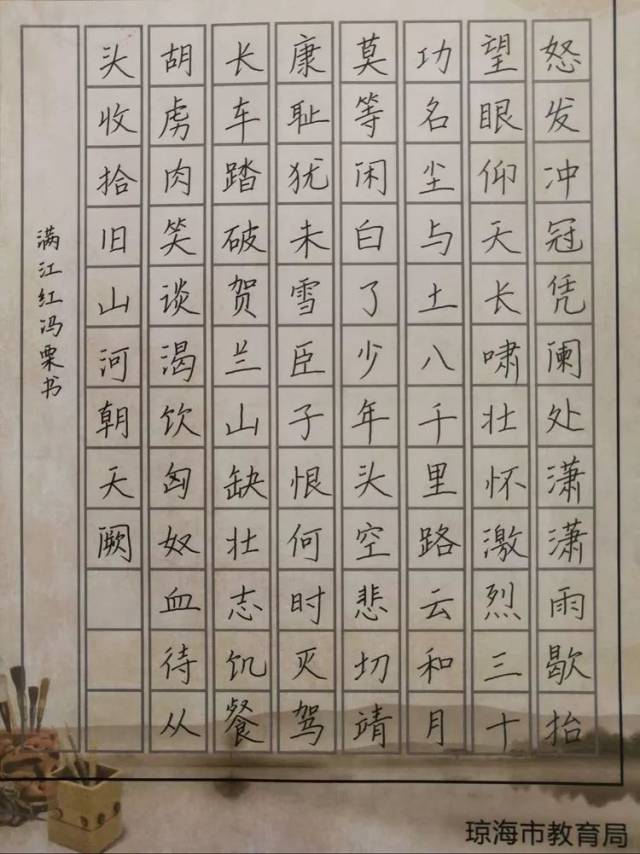 怒发冲冠凭阑处潇潇雨歇抬
望眼仰天长啸壮怀激烈三十
功名尘与土八千里路云和月
莫等闲白了少年头空悲切靖
康耻犹未雪臣子恨何时灭驾
长车踏破贺兰山缺壮志饥餐
胡虏肉笑谈渴饮匈奴血待从
头收拾旧山河朝天阙
满江红冯栗书
琼海市教育局